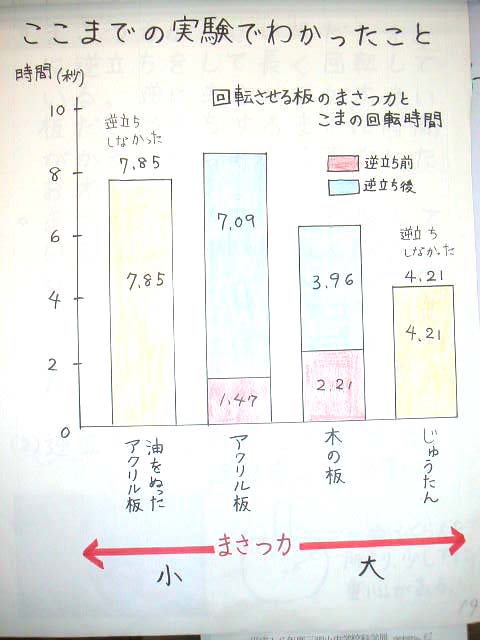 ここまでの実験でわかったこと
時間(秒)
回転させる板のまさつ力と
こまの回転時間
逆立ち前
逆立ち後
10
8
6
4
2
0
逆立ち
しなかった
7.85
7.85
7.09
1.47
3.96
2.21
逆立ち
しなかった
4.21
4.21
油をぬった
アクリル板
アクリル板
木の板
じゅうたん
まさつ力
小
大
19